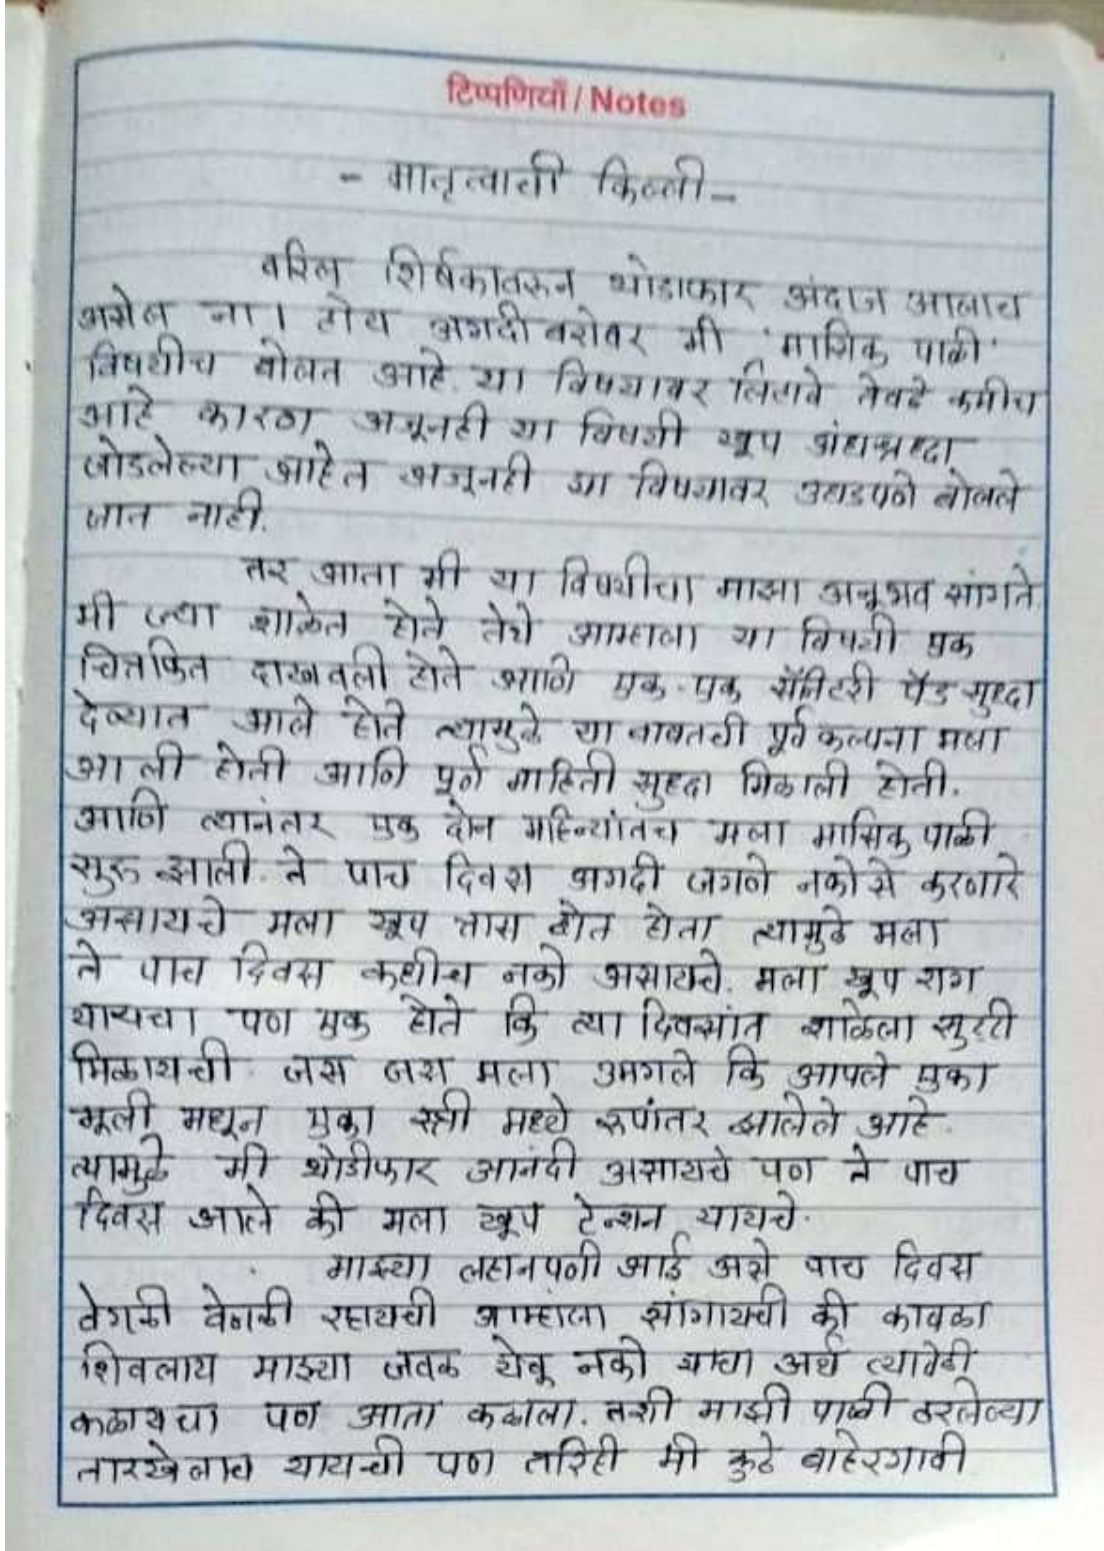 टिप्पणियाँ / Notes
- मातृत्वाची किल्ली -
वरिल शिर्षकावरून थोडाफार अंदाज आलाच
असेल ना। होय अगदी बरोबर मी 'मासिक पाळी'
विषयीच बोलत आहे. या विषयावर लिहावे तेवढे कमीच
आहे कारण अजूनही या विषयी खूप अंधश्रध्दा
जोडलेल्या आहेत अजूनही या विषयावर उघडपणे बोलले
जात नाही.
तर आता मी या विषयीचा माझा अनूभव सांगते.
मी ज्या शाळेत होते तेथे आम्हाला या विषयी एक
चित्तफित दाखवली होते आणि एक-एक सॅनिटरी पॅड सुध्दा
देण्यात आले होते त्यामुळे या बाबतची पूर्व कल्पना मला
आली होती आणि पूर्ण माहिती सुध्दा मिळाली होती.
आणि त्यानंतर एक दोन महिन्यांतच मला मासिक पाळी
सुरु झाली. ते पाच दिवस अगदी जगणे नकोसे करणारे
असायचे मला खूप त्रास होत होता त्यामुळे मला
ते पाच दिवस कधीच नको असायचे. मला खूप राग
यायचा पण एक होते कि त्या दिवसांत शाळेला सुट्टी
मिळायची. जस जस मला उमगले कि आपले एका
मूली मधून एका स्त्री मध्ये रूपांतर झालेले आहे.
त्यामुळे मी थोडीफार आनंदी असायचे पण ते पाच
दिवस आले की मला खूप टेन्शन यायचे.
माझ्या लहानपणी आई असे पाच दिवस
वेगळी वेगळी रहायची आम्हांला सांगायची की कावळा
शिवलाय माझ्या जवळ येवू नको याचा अर्थ त्यावेळी
कळायचा पण आता कळाला. तशी माझी पाळी ठरलेल्या
तारखेलाच यायची पण तरिही मी कुठे बाहेरगावी